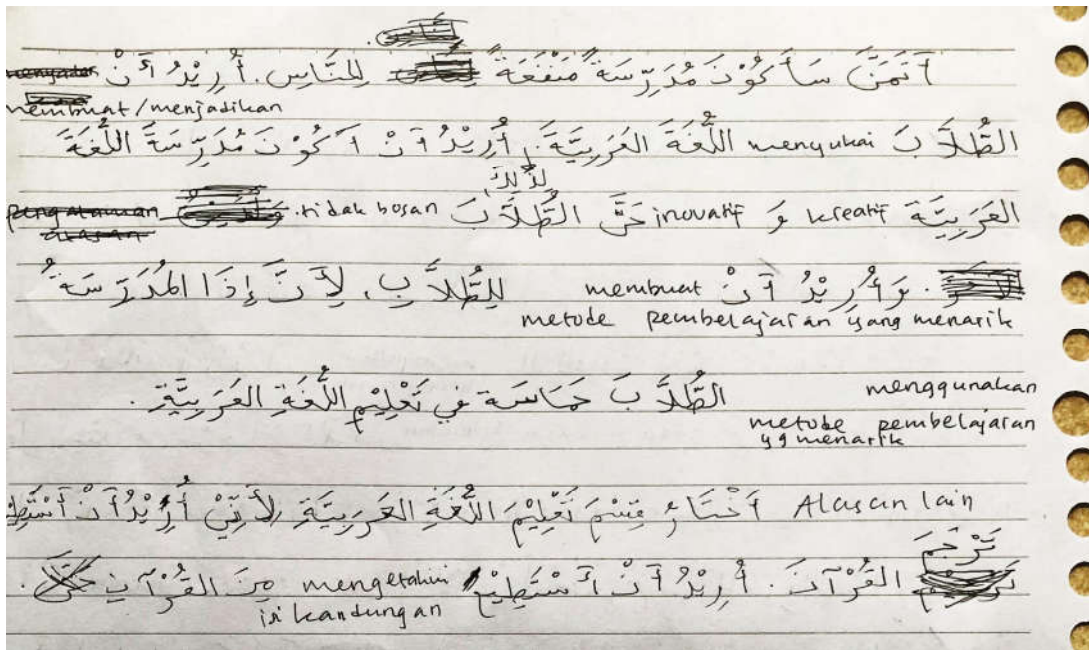 أَتَمَنَّ سَأَكُوْنَ مُدَرِّسَةً مَنْفَعَةً لِلنَّاسِ. أُرِيْدُ أَنْ
membuat/menjadikan
الطُّلَّابَ menyukai اللُّغَةَ العَرَبِيَّةَ. أُرِيْدُ أَنْ أَكُوْنَ مُدَرِّسَةً اللُّغَةَ
لِذٰلِكَ
العَرَبِيَّةَ kreatif وَ inovatif حَتَّى الطُّلَّابَ tidak bosan.
وَأُرِيْدُ أَنْ membuat لِلطُّلَّابِ، لِأَنَّ إِذَا المُدَرِّسَةُ
metode pembelajaran yang menarik
menggunakan الطُّلَّابَ حَمَاسَة فِي تَعْلِيْمِ اللُّغَةِ العَرَبِيَّةِ.
metode pembelajaran
yg menarik
Alasan lain أَخْتَارُ قِسْمَ تَعْلِيْمَ اللُّغَةِ العَرَبِيَّةِ لِأَنِّيْ أُرِيْدُ أَنْ
تَرْجَمَ
القُرْآنَ. أُرِيْدُ أَنْ أَسْتَطِيْعَ mengetahui مِنَ القُرْآنِ
isi kandungan